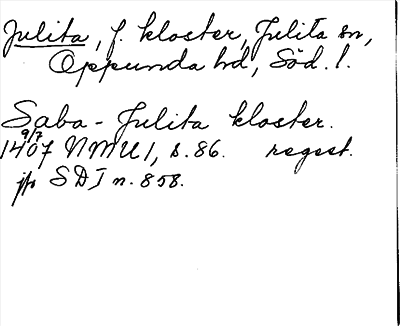 Julita, f. kloster, Julita sn,
Oppunda hd, Söd. l.
Saba - Julita kloster.
9/7
1407 NMU 1, s. 86. regest.
jfr SDI n. 858.